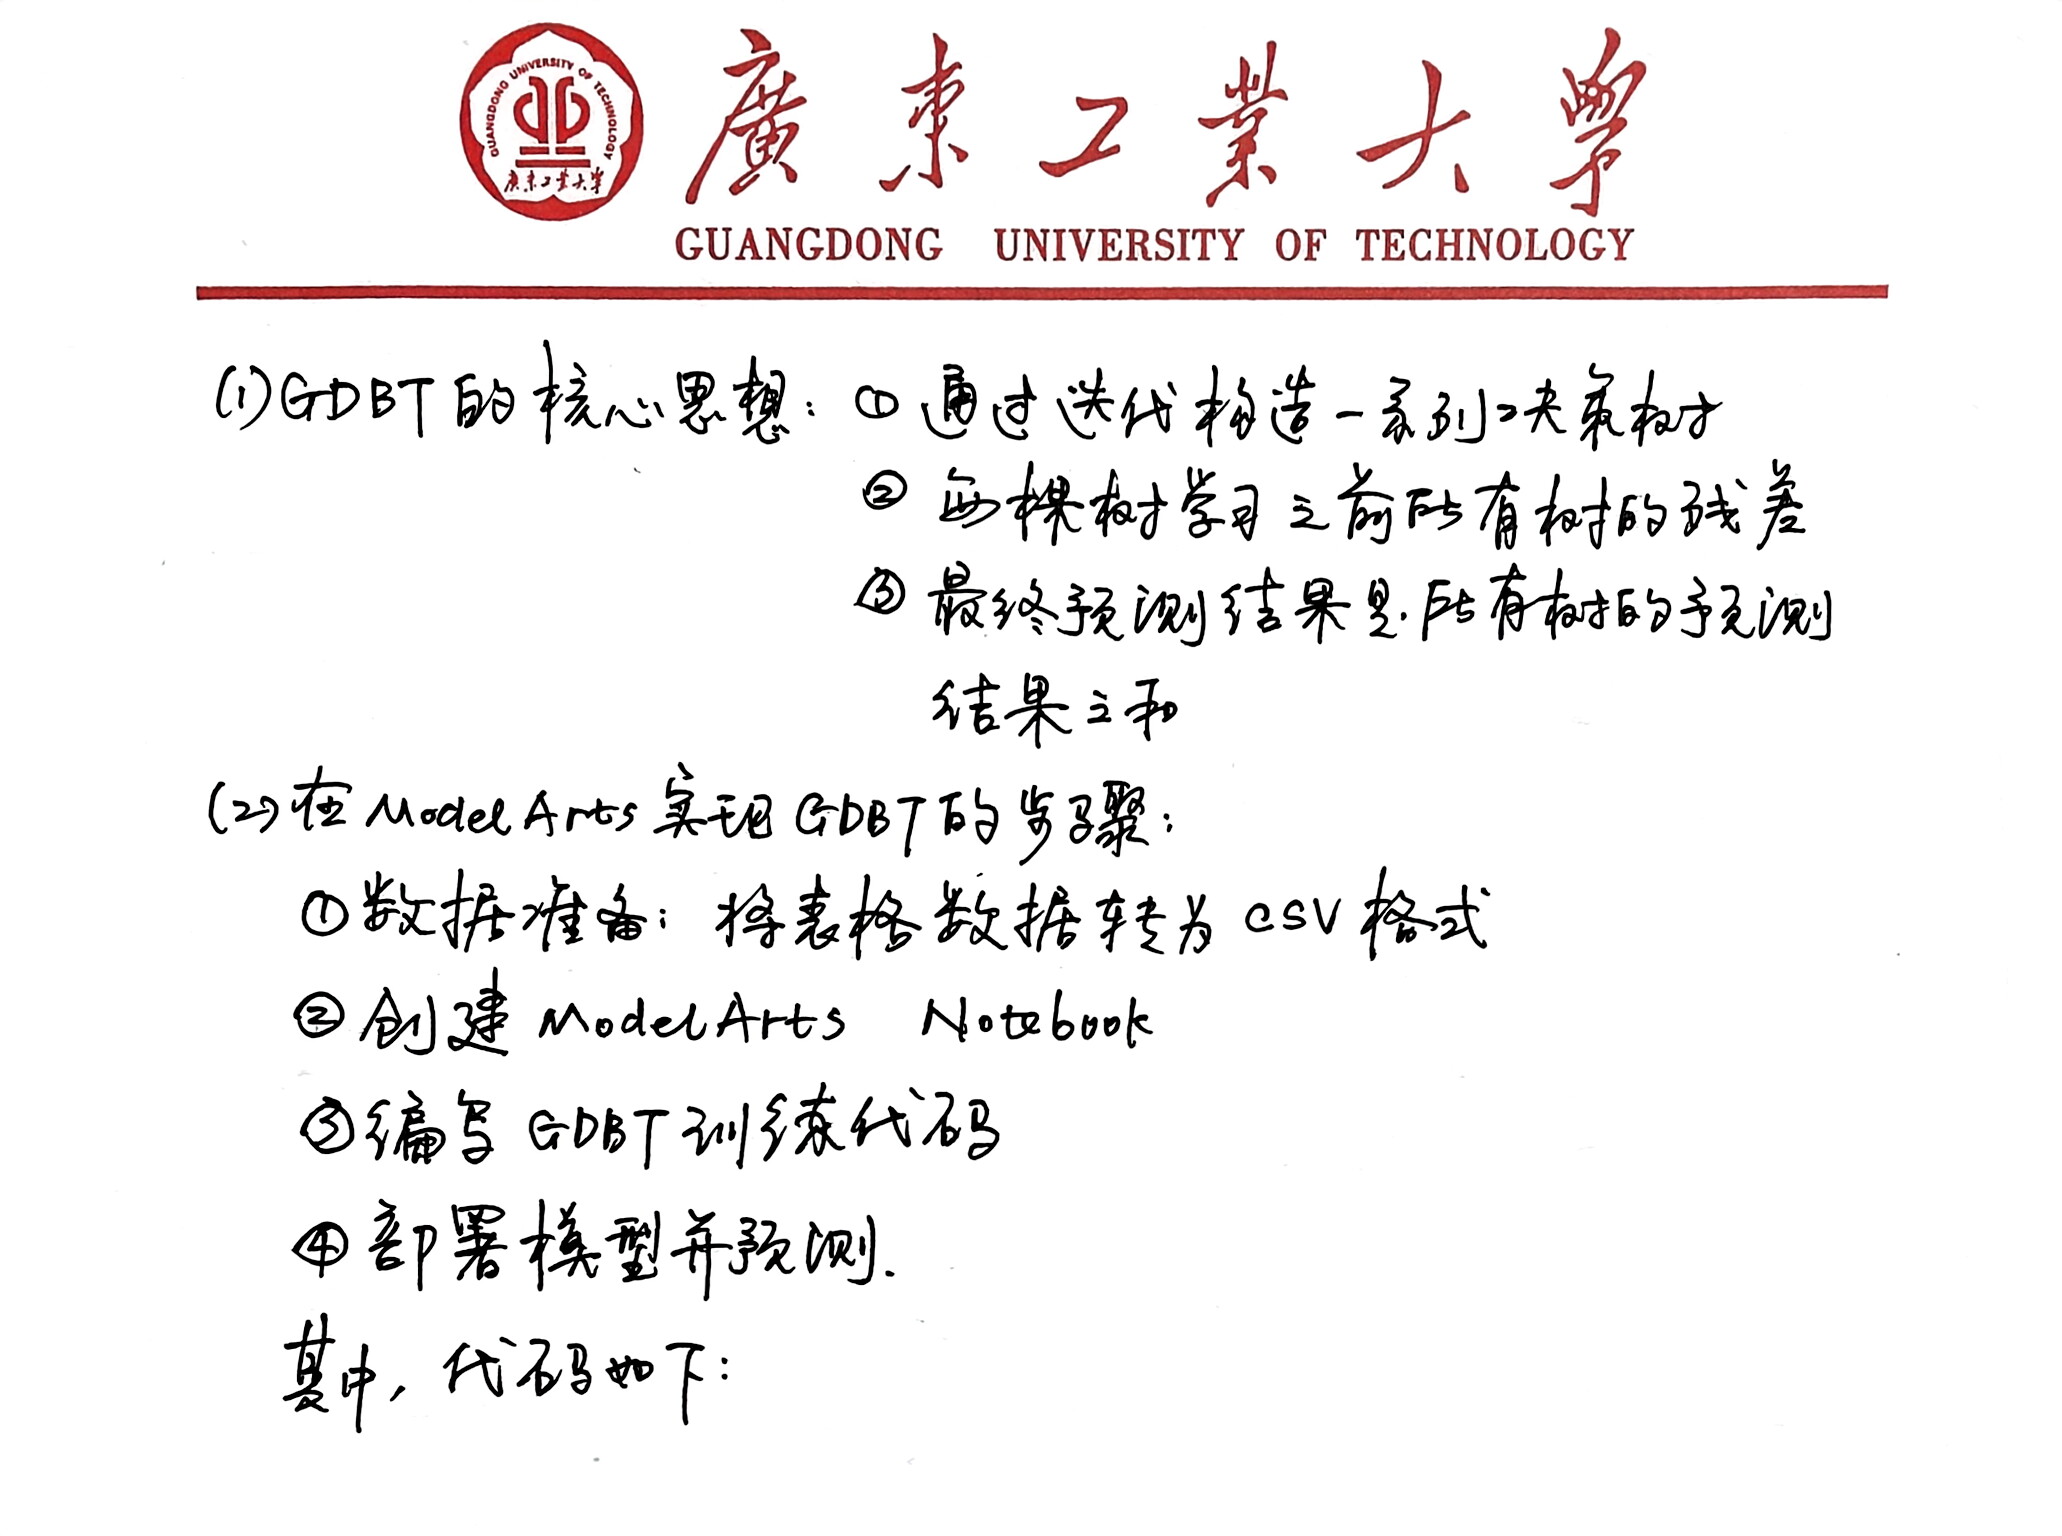 GUANGDONG UNIVERSITY OF TECHNOLOGY
廣東工業大學
廣東工業大學
GUANGDONG UNIVERSITY OF TECHNOLOGY
(1)GDBT的核心思想：①通过迭代构造一系列决策树
②每棵树学习之前所有树的残差
③最终预测结果是所有树的预测
结果之和
(2)在ModelArts实现GDBT的步骤：
①数据准备：将表格数据转为CSV格式
②创建ModelArts Notebook
③编写GDBT训练代码
④部署模型并预测.
其中，代码如下：